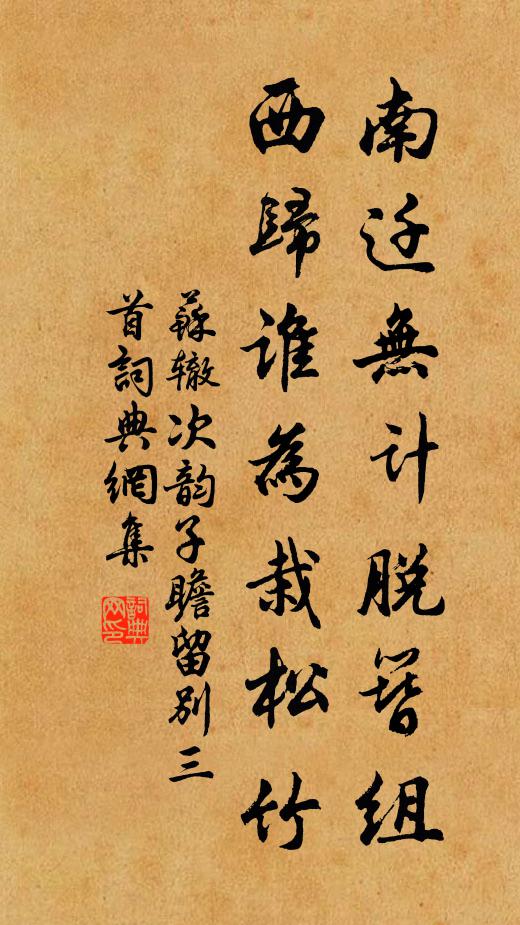 南迁無计脱簪组
西歸谁為栽松竹
蘇辙次韵子瞻留别三
首詞典網集
詞典网印